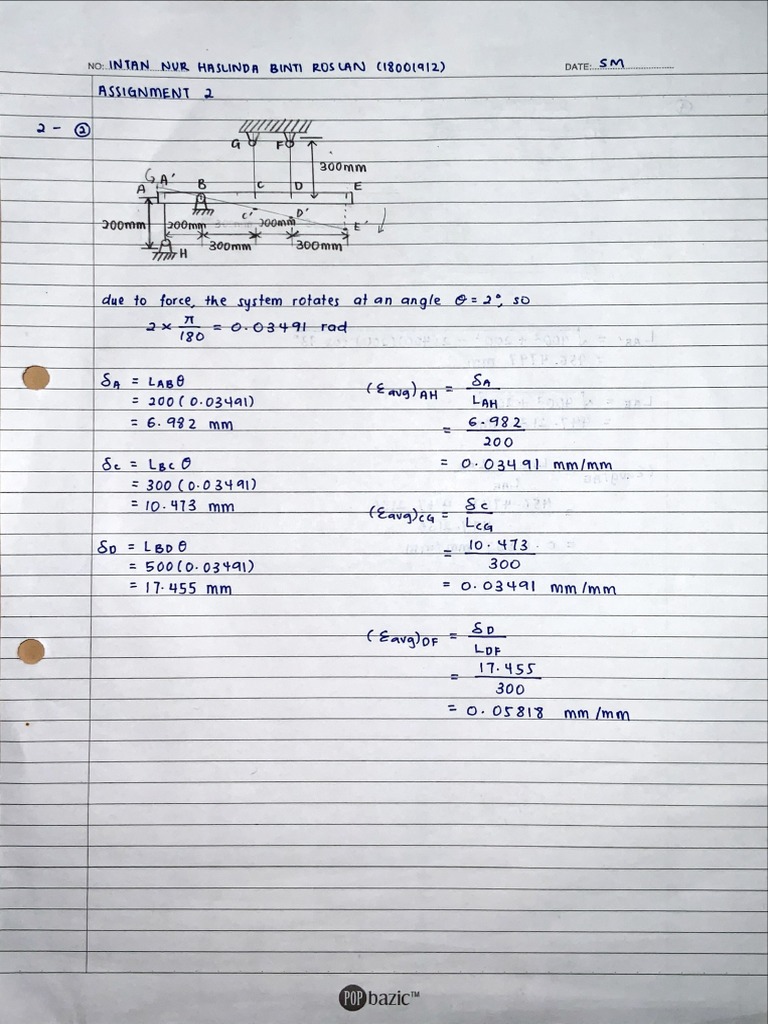 NO: INTAN NUR HASLINDA BINTI ROSLAN (18001912) DATE: SM
ASSIGNMENT 2
2 - ②
G F
300mm
A A' B C D E
C' D' E'
200mm 200mm 200mm
300mm 300mm
H
due to force, the system rotates at an angle θ = 2°, so
2 × π/180 = 0.03491 rad
δA = LAB θ
= 200 (0.03491)
= 6.982 mm
δC = LBC θ
= 300 (0.03491)
= 10.473 mm
δD = LBD θ
= 500 (0.03491)
= 17.455 mm
(εavg)AH = δA / LAH
= 6.982 / 200
= 0.03491 mm/mm
(εavg)CG = δC / LCG
= 10.473 / 300
= 0.03491 mm/mm
(εavg)DF = δD / LDF
= 17.455 / 300
= 0.05818 mm/mm
POP bazic™